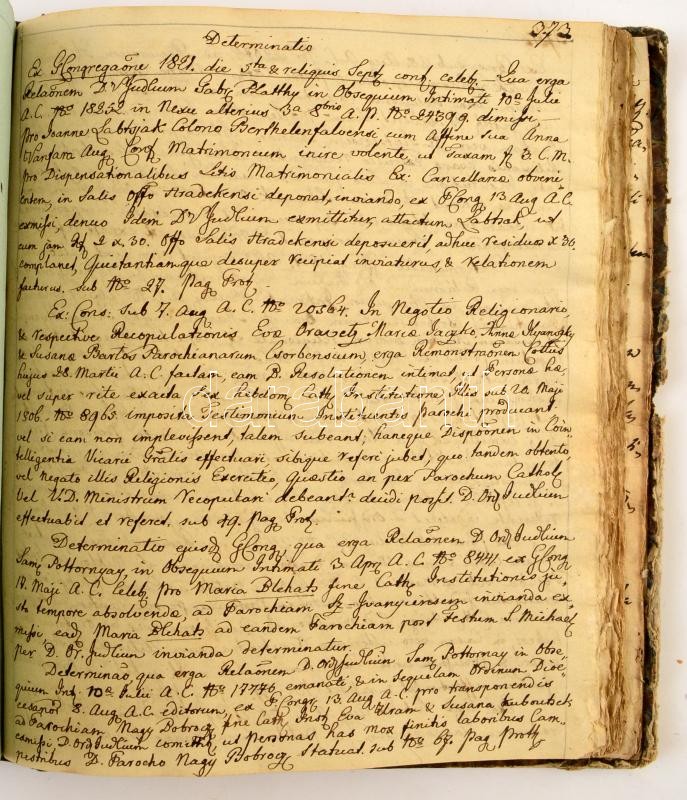 373
Determinatio
Ex GCongregaõne 1821. die 5ta & reliquis Sept conf. celeb — Qua erga
Relaõnem D. Judlium Gabr Platthy in Obsequium Intimati 10a Julie
A. C. No 18252 in Nexu alterius 3a 8brio A. P. No 24399 dimissi,
pro Joanne Labtsjak Colono Berthelenfalvensi cum Affine sua Anna
Vanfara Aug. Conf Matrimonium inire volente, ut Taxam f 3. C. M.
pro Dispensationalibus Letis Matrimonialis Ex: Cancellariæ obveni
entem, in Salis Offo Hradekensi deponat, inviando, ex GCong 13 Aug A. C.
exmissi, denuo Idem D. Judlium exmittitur, attactum Labtsak ut
cum jam 2 x, 30. Offo Salis Hradekensi deposuerit adhuc residuos x 30
complanet, Quietantiamque desuper recipiat inviaturus, & relationem
facturus. sub No 27. pag Prot.
Ex: Cons: sub 7. Aug A. C. No 20364. In Negotio Religionario,
& respective Recopulationis Evæ Oravetz, Mariæ Jaczko, Annæ Ilyanszky
& Susanæ Bartos Parochianarum Csorbensium, erga Remonstraõnem Cottus
hujus 28. Martii A. C. factam eam B. Resolutionem intimat, ut Personæ hæ
vel super rite exacta sex hebdom. Cath Institutione, Illis sub 20. Maji
1806. No 8965 imposita Testimonium Instituentis parochi producant
vel si eam non implevissent, talem subeant, hancque Dispoõnem in Coin-
telligentia Vicarii Gralis effectuari sibique referi jubet, quo tandem obtento,
vel negato illis Religionis Exercitio, Quæstio an per Parochum Cathol
vel V. D. Ministrum recopulari debeant decidi possit. D. Ord Judlium
effectuabit et referet. sub 49. pag Prot.
Determinatio ejusd GCong, qua erga Relaõnem D. Ord Judlium
Sam Pottornyay in Obsequium Intimati 3 Apr A. C. No 8441 ex GCong
14. Maji A. C. Celeb pro Maria Blehats fine Cath Institutionis ju-
sto tempore absolvendæ, ad Parochiam Sz-Ivanyiensem invianda ex-
missi, ead Maria Blehats ad eandem Parochiam post Festum S. Michael
per D. Or. Judlium invianda determinatur.
Determinaõ, qua erga Relaõnem D. Ord Judlium Sam Pottornay in Obse-
quium Int 10a Julii A. C. No 17776 emanati, & in sequelam Ordinum Dioe-
cesanor 8. Aug A. C. editorum, ex GCong 13 Aug A. C. pro transponendis
ad Parochiam Nagy Bobrocz fine Cath Inst Eva Uram & Susana Kuboutsek
exmissi D. Ord Judlium comitti, ut personas has mox finitis laboribus Cam-
pestribus D. Parocho Nagy Bobrocz statuat. sub No 67. pag Proth
darabanth